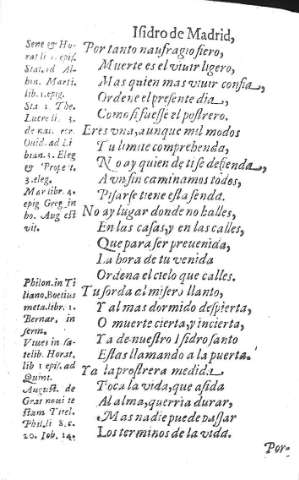 Isidro de Madrid,
Por tanto naufragio fiero,
Muerte es el viuir ligero,
Mas quien mas viuir confia,
Ordene el presente dia,
Como si fuesse el postrero.
Eres vna, aunque mil modos
Tu limite comprehenda,
No ay quien de ti se defienda,
A vn fin caminamos todos,
Pisarse tiene esta senda.
No ay lugar donde no halles,
En las casas, y en las calles,
Que para ser preuenida,
La hora de tu venida
Ordena el cielo que calles.
Tu sorda al misero llanto,
Y al mas dormido despierta,
O muerte cierta, y incierta,
Ya de nuestro Isidro santo
Estas llamando a la puerta.
Ya la postrera medida
Toca la vida, que asida
Al alma, querria durar,
Mas nadie puede passar
Los terminos de la vida.
Por-
Sene & Ho-
rat li 1. epis.
Stat. ad Al-
bon. Maeti.
lib. 1. epig.
Sta 2 The.
Lucre li 3.
de nat. rer.
Ouid. ad Li
biam. 3. Eleg
& Propert.
3. eleg.
Mar libr. 4.
epig Greg. in
ho. Aug est
vit.
Philon. in Ti
liano, Boetius
meta. libr. 1.
Bernar. in
serm.
Viues in sa-
telib. Horat.
lib 1 epis. ad
Quint.
August. de
Grat noui te
stam
Psal. li 8. c.
20. Iob, 14.